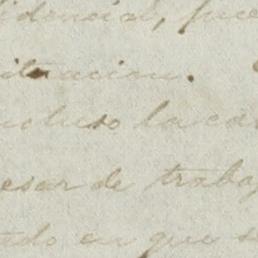 idencial, puc
ituacion.
incluso la ca
esar de traba
tado en que s